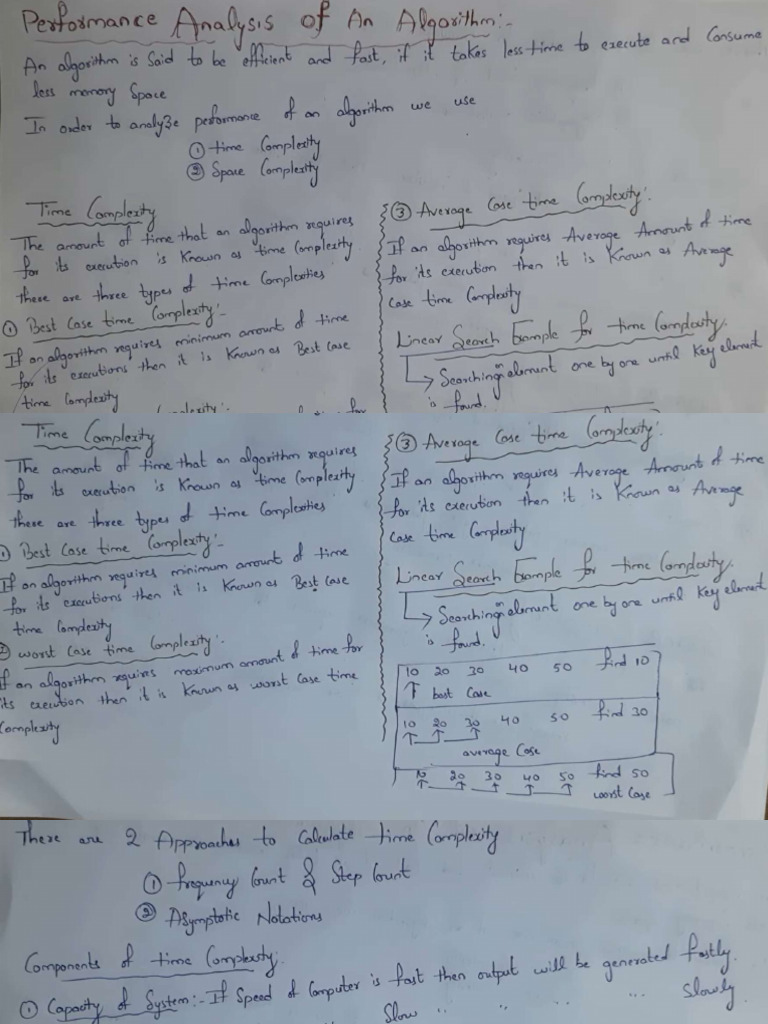 Performance Analysis of An Algorithm:-
An algorithm is Said to be efficient and fast, if it takes less time to execute and Consume
less memory Space
In order to analyze performance of an algorithm we use
① time Complexity
② Space Complexity
Time Complexity
The amount of time that an algorithm requires
for its execution is Known as time Complexity
there are three types of time Complexities
① Best Case time Complexity:-
If an algorithm requires minimum amount of time
for its executions then it is Known as Best Case
time Complexity
③ Average Case time Complexity:
If an algorithm requires Average Amount of time
for its execution then it is Known as Average
Case time Complexity
Linear Search Example for time Complexity.
↳ Searching an element one by one until Key element
is found.
Time Complexity
The amount of time that an algorithm requires
for its execution is Known as time Complexity
there are three types of time Complexities
① Best Case time Complexity:-
If an algorithm requires minimum amount of time
for its executions then it is Known as Best Case
time Complexity
② worst Case time Complexity:-
If an algorithm requires maximum amount of time for
its execution then it is Known as worst Case time
Complexity
③ Average Case time Complexity:
If an algorithm requires Average Amount of time
for its execution then it is Known as Average
Case time Complexity
Linear Search Example for time Complexity.
↳ Searching an element one by one until Key element
is found.
10 20 30 40 50 find 10
↑ best Case
10 20 30 40 50 find 30
average Case
10 20 30 40 50 find 50
worst Case
There are 2 Approaches to Calculate time Complexity
① frequency Count & Step Count
② Asymptotic Notations
Components of time Complexity:
① Capacity of System:- If Speed of Computer is fast then output will be generated fastly.
Slow " " " Slowly